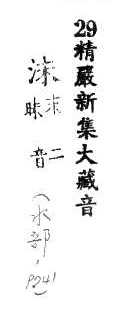 29精嚴新集大藏音
末二
昧音
(水部, P241)